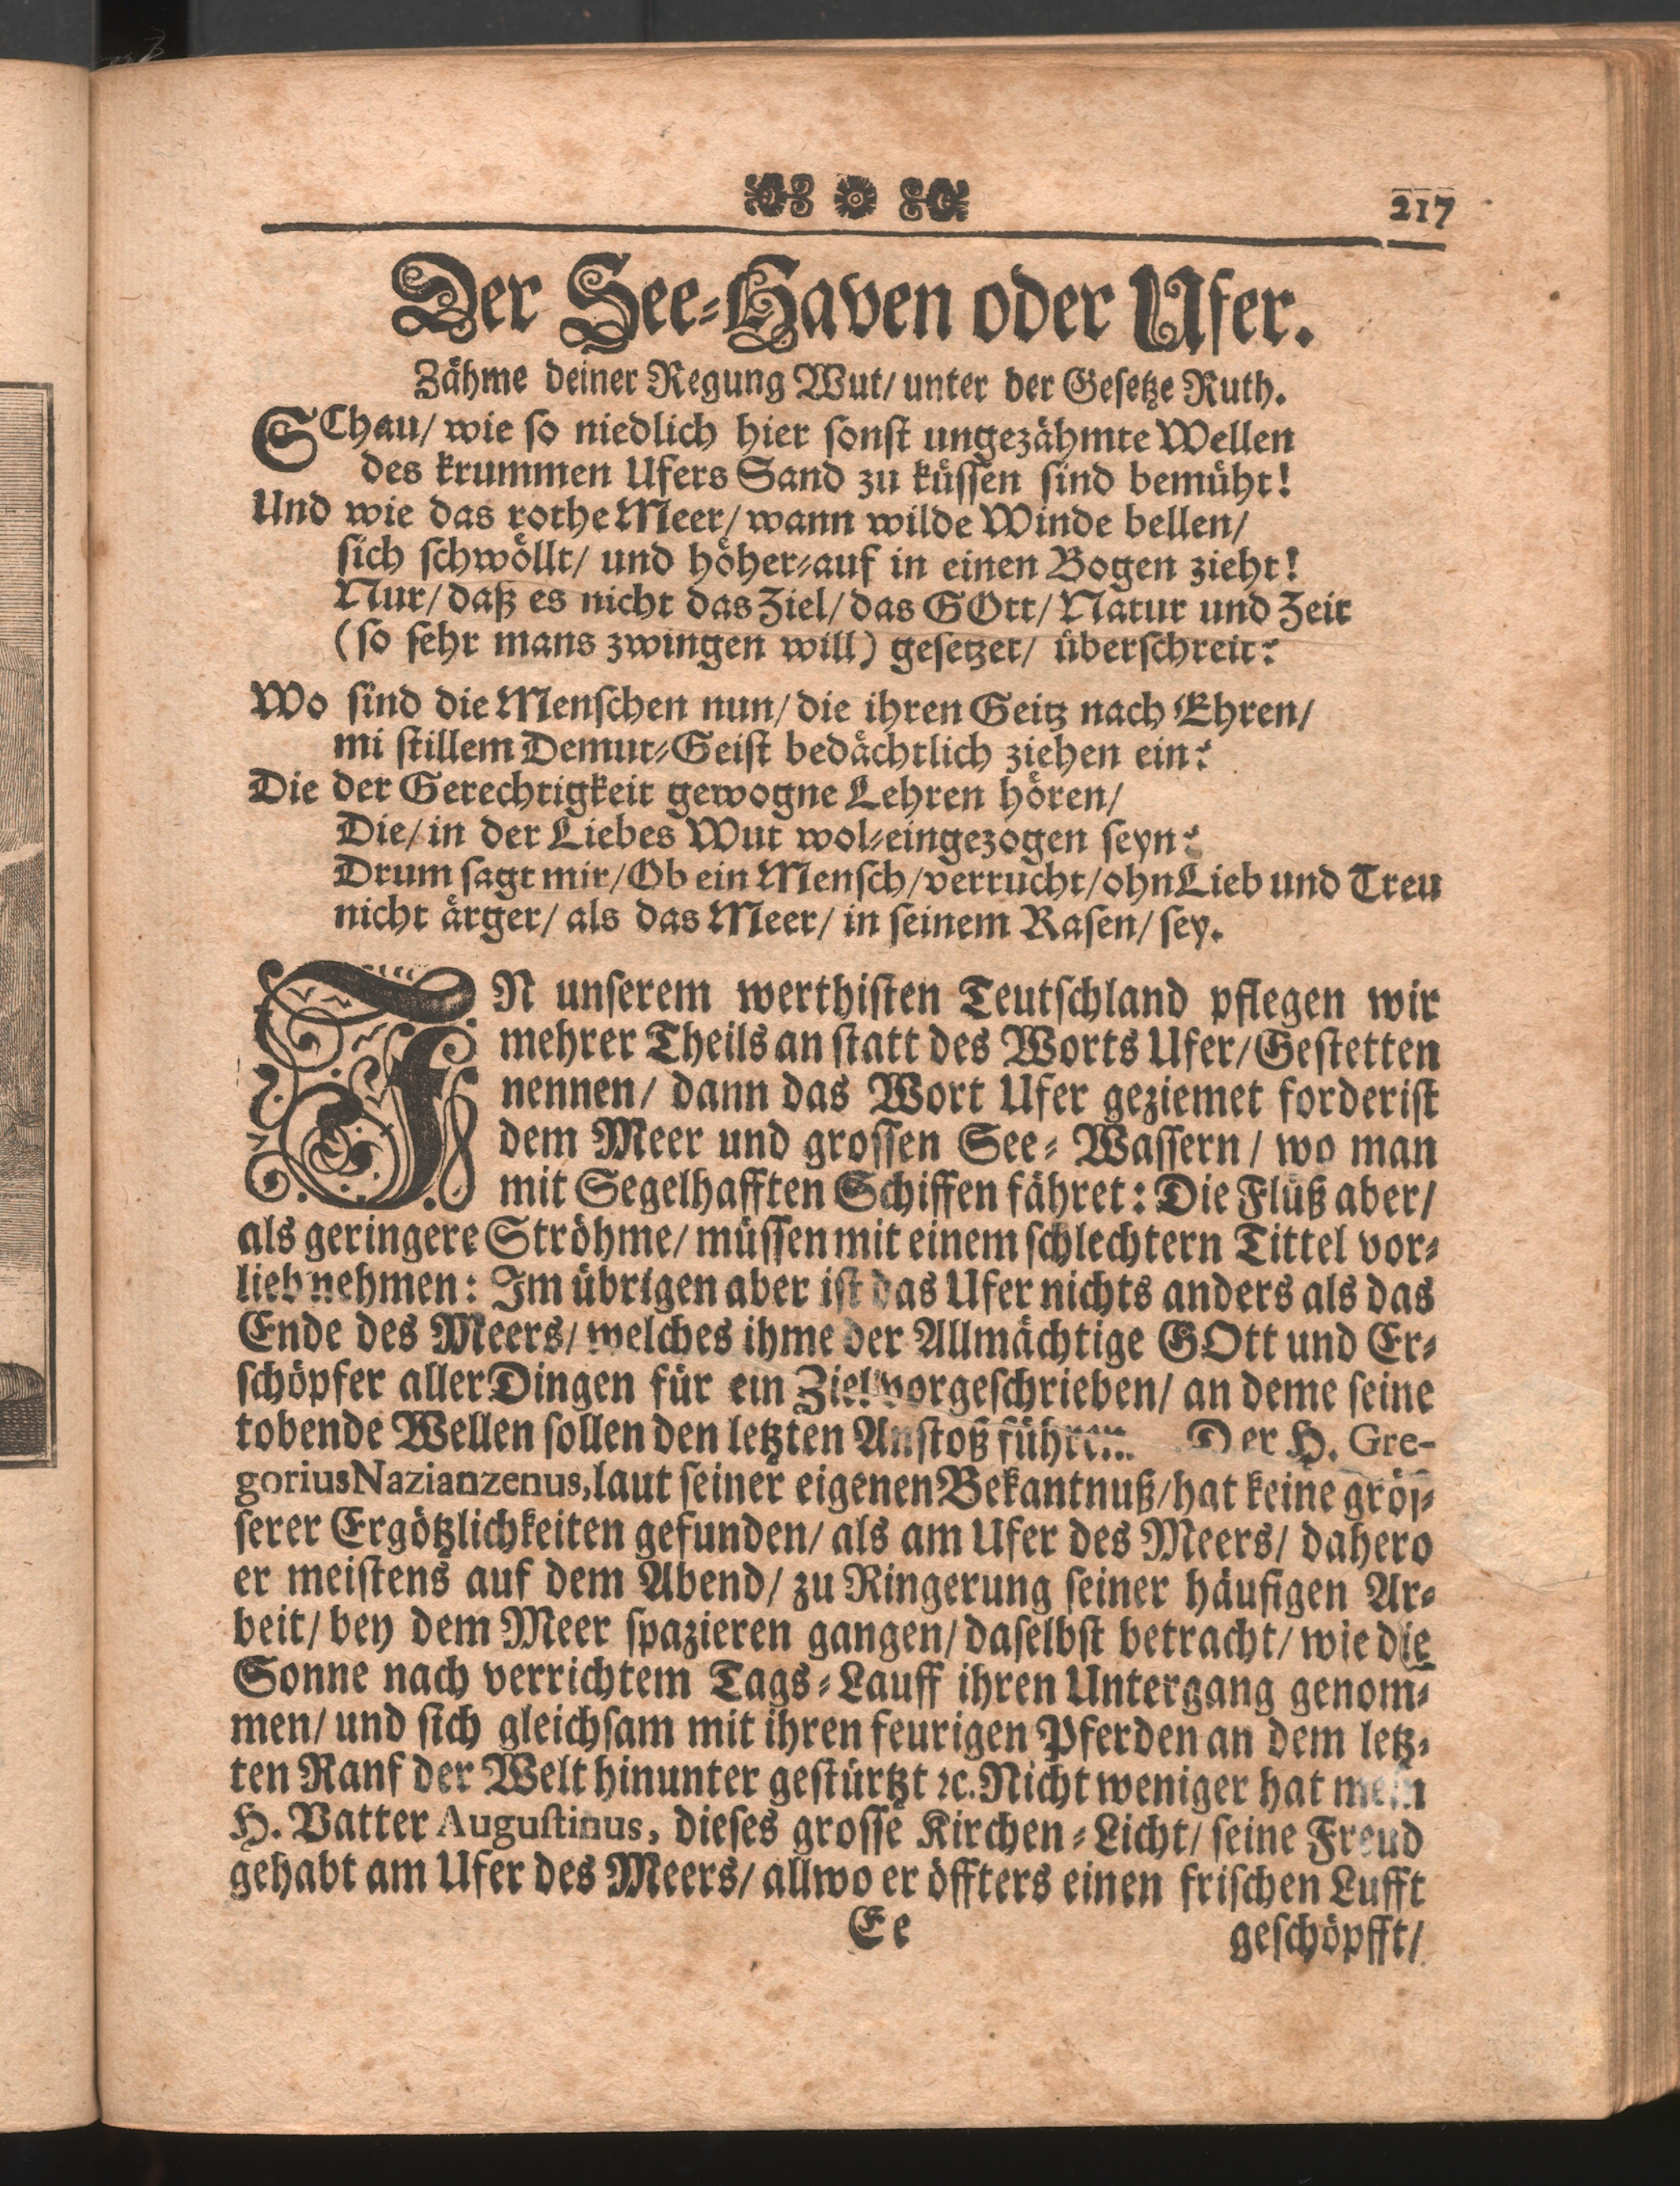 217
Der See-Haven oder Ufer.
Zähme deiner Regung Wut/ unter der Gesetze Ruth.
SChau/ wie so niedlich hier sonst ungezähmte Wellen
des krummen Ufers Sand zu küssen sind bemüht!
Und wie das rothe Meer/ wann wilde Winde bellen/
sich schwöllt/ und höher-auf in einen Bogen zieht!
Nur/ daß es nicht das Ziel/ das GOtt/ Natur und Zeit
(so sehr mans zwingen will) gesetzet/ überschreit?
Wo sind die Menschen nun/ die ihren Geitz nach Ehren/
mi stillem Demut-Geist bedächtlich ziehen ein?
Die der Gerechtigkeit gewogne Lehren hören/
Die/ in der Liebes Wut wol-eingezogen seyn?
Drum sagt mir/ Ob ein Mensch/ verrucht/ ohn Lieb und Treu
nicht ärger/ als das Meer/ in seinem Rasen/ sey.
IN unserem werthisten Teutschland pflegen wir
mehrer Theils an statt des Worts Ufer/ Gestetten
nennen/ dann das Wort Ufer geziemet forderist
dem Meer und grossen See- Wassern/ wo man
mit Segelhafften Schiffen fähret: Die Flüß aber/
als geringere Ströhme/ müssen mit einem schlechtern Tittel vor-
lieb nehmen: Im übrigen aber ist das Ufer nichts anders als das
Ende des Meers/ welches ihme der Allmächtige GOtt und Er-
schöpfer aller Dingen für ein Ziel vorgeschrieben/ an deme seine
tobende Wellen sollen den letzten Anstoß führen. Der H. Gre-
gorius Nazianzenus, laut seiner eigenen Bekantnuß/ hat keine grös-
serer Ergötzlichkeiten gefunden/ als am Ufer des Meers/ dahero
er meistens auf dem Abend/ zu Ringerung seiner häufigen Ar-
beit/ bey dem Meer spazieren gangen/ daselbst betracht/ wie die
Sonne nach verrichtem Tags-Lauff ihren Untergang genom-
men/ und sich gleichsam mit ihren feurigen Pferden an dem letz-
ten Ranf der Welt hinunter gestürtzt ꝛc. Nicht weniger hat mein
H. Vatter Augustinus, dieses grosse Kirchen-Licht/ seine Freud
gehabt am Ufer des Meers/ allwo er öffters einen frischen Lufft
Ee
geschöpfft/